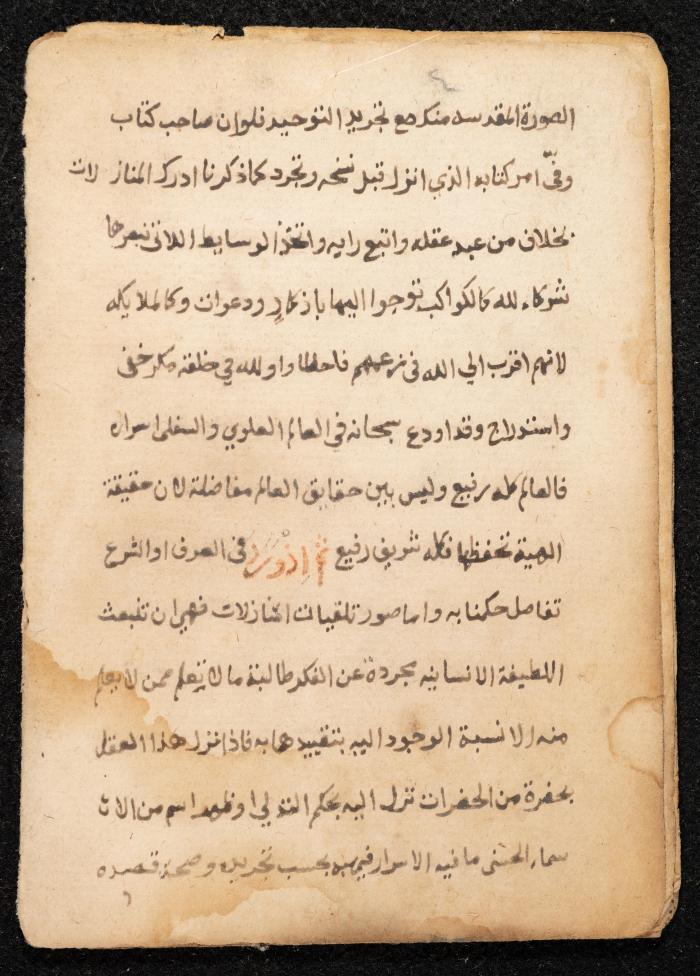 ٤
الصورة المقدسه منك مع تجريد التوحيد فلوان صاحب كتاب
وفّى امر كتابه الذي انزل قبل نسخه وتجرد كما ذكرنا ادرك المناز لات
بخلاف من عبد عقله واتبع رايه واتخذ الوسايط اللاتى
شركاء لله كالكواكب توجوا اليها باذكار ودعوات وكالملايكه
لانهم اقرب الي الله فى زعمهم فاخطا واولله في خلقه مكر خفى
واستدراج وقد اودع سبحانه في العالم العلوي والسفلى اسراره
فالعالم كله رفيع وليس بين حقايق العالم مفاضلة لان حقيقة
الهية تحفظها فكله شريف رفيع ثم اذ ورد فى العرف او الشرع
تفاصل حكمنا به واما صور تلقيات المنازلات فهي ان تنبعث
اللطيفة الانسانيه مجردة عن الفكر طالبة ما لا تعلم ممن لا يعلم
منه الا نسبة الوجود اليه بتقييدها به فاذا نزل هذا العقل
بحضرة من الحضرات تنزل اليه بحكم التدلي او ظهر اسم من الاث
سماء الحسنى ما فيه الاسرار فيهبه بحسب تجريده وصحة قصده